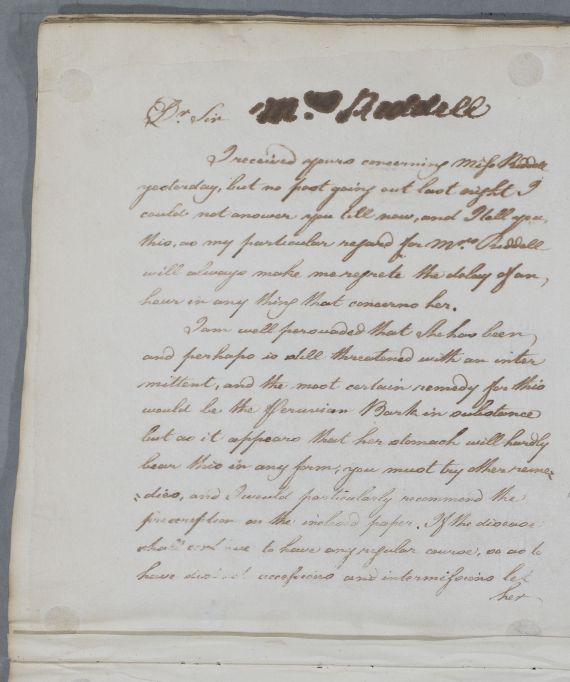 Dr. Sir Mrs. Riddell
I received yours concerning Miss Riddell
yesterday, but no post going out last night I
could not answer you till now, and I tell you
this, as my particular regard for Mrs. Riddell
will always make me regrete the delay of an
hour in any thing that concerns her.
I am well persuaded that She has been
and perhaps is still threatened with an inter
mittent, and the most certain remedy for this
would be the Peruvian Bark in substance
but as it appears that her stomach will hardly
bear this in any form, you must try other reme-
-dies, and I would particularly recommend the
prescription on the inclosed paper. If the disease
shall continue to have any regular course, so as to
have distinct accessions and intermissions let
her